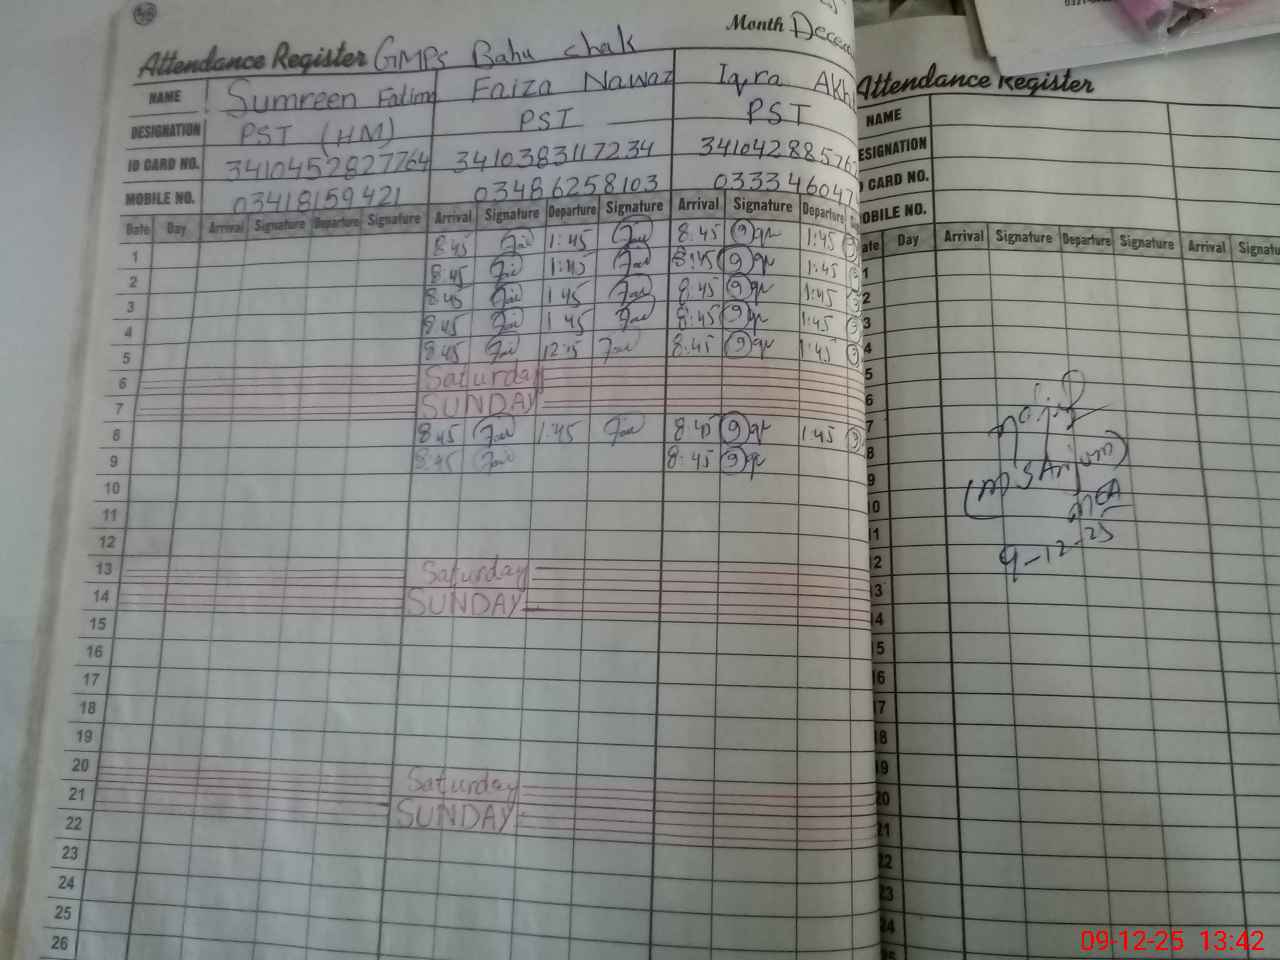 Month Decem
Attendance Register GMPS Bahu chak
NAME Sumreen Fatim Faiza Nawaz Iqra Akh
DESIGNATION PST (HM) PST PST
ID CARD NO. 3410452827764 3410383117234 34104288576
MOBILE NO. 03418159421 03486258103 033346047
Date Day Arrival Signature Departure Signature Arrival Signature Departure Signature Arrival Signature Departure
1 8:45 1:45 8:45 1:45
2 8:45 1:45 8:45 1:45
3 8:45 1:45 8:45 1:45
4 8:45 1:45 8:45 1:45
5 8:45 12:15 8:45 1:45
6 Saturday
7 SUNDAY
8 8:45 1:45 8:45 1:45
9 8:45 8:45
10
11
12
13 Saturday
14 SUNDAY
15
16
17
18
19
20 Saturday
21 SUNDAY
22
23
24
25
26
Attendance Register
NAME
ESIGNATION
CARD NO.
OBILE NO.
ate Day Arrival Signature Departure Signature Arrival Signatu
1
2
3
4
5
6
7
8
9
10
11
12
13
14
15
16
17
18
19
20
21
22
23
24
MEA
9-12-25
09-12-25 13:42